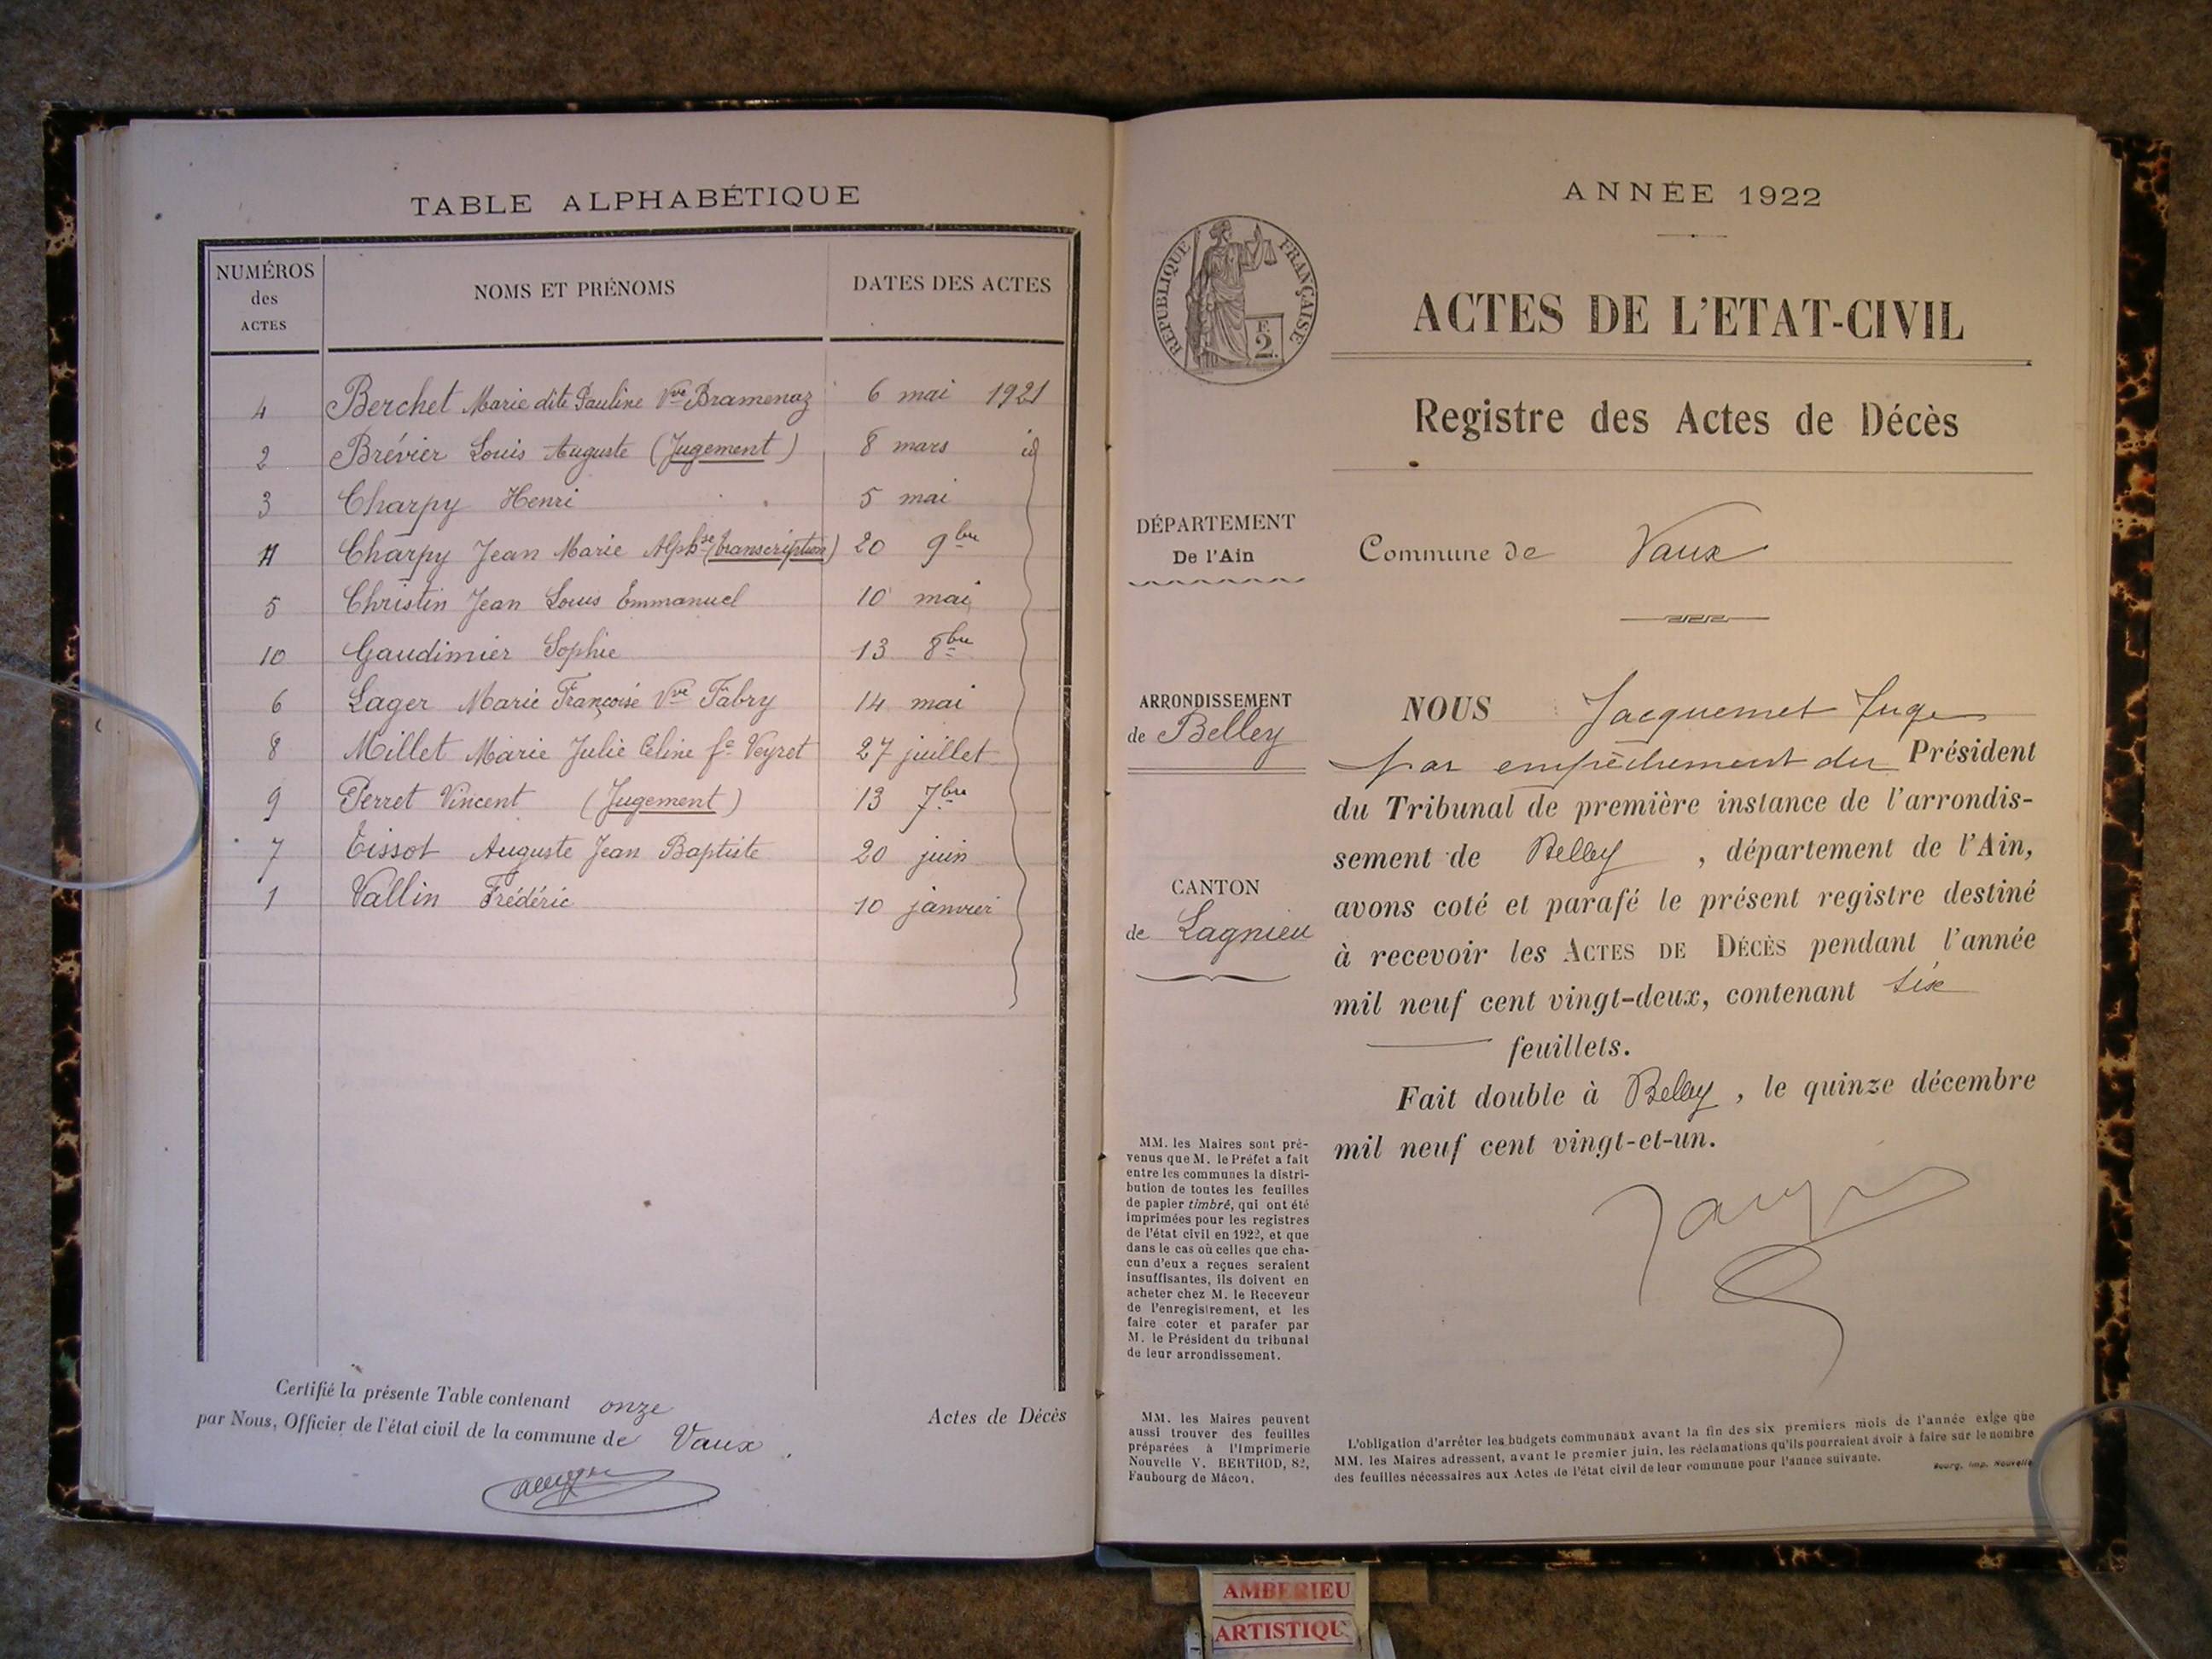 TABLE ALPHABÉTIQUE
NUMÉROS des ACTES NOMS ET PRÉNOMS DATES DES ACTES
4 Berchet Marie dite Pauline Vve Bramenaz 6 mai 1921
2 Brévier Louis Auguste (Jugement) 8 mars id
3 Charpy Henri 5 mai
11 Charpy Jean Marie Alphse (transcription) 20 9bre
5 Christin Jean Louis Emmanuel 10 mai
10 Gaudimier Sophie 13 8bre
6 Lager Marie Françoise Vve Fabry 14 mai
8 Millet Marie Julie Céline fe Veyret 27 juillet
9 Perret Vincent (Jugement) 13 7bre
7 Tissot Auguste Jean Baptiste 20 juin
1 Vallin Frédéric 10 janvier
Certifié la présente Table contenant onze Actes de Décès
par Nous, Officier de l'état civil de la commune de Vaux.
ANNÉE 1922
RÉPUBLIQUE FRANÇAISE
F.
2.
ACTES DE L'ETAT-CIVIL
Registre des Actes de Décès
DÉPARTEMENT
De l'Ain
Commune de Vaux
ARRONDISSEMENT
de Belley
CANTON
de Lagnieu
NOUS Jacquemet Juge
par empêchement du Président
du Tribunal de première instance de l'arrondis-
sement de Belley, département de l'Ain,
avons coté et parafé le présent registre destiné
à recevoir les ACTES DE DÉCÈS pendant l'année
mil neuf cent vingt-deux, contenant six
feuillets.
Fait double à Belley, le quinze décembre
mil neuf cent vingt-et-un.
MM. les Maires sont pré-
venus que M. le Préfet a fait
entre les communes la distri-
bution de toutes les feuilles
de papier timbré, qui ont été
imprimées pour les registres
de l'état civil en 1922, et que
dans le cas où celles que cha-
cun d'eux a reçues seraient
insuffisantes, ils doivent en
acheter chez M. le Receveur
de l'enregistrement, et les
faire coter et parafer par
M. le Président du tribunal
de leur arrondissement.
MM. les Maires peuvent
aussi trouver des feuilles
préparées à l'Imprimerie
Nouvelle V. BERTHOD, 82,
Faubourg de Mâcon.
L'obligation d'arrêter les budgets communaux avant la fin des six premiers mois de l'année exige que
MM. les Maires adressent, avant le premier juin, les réclamations qu'ils pourraient avoir à faire sur le nombre
des feuilles nécessaires aux Actes de l'état civil de leur commune pour l'année suivante.
Bourg, Imp. Nouvelle
AMBERIEU
ARTISTIQU